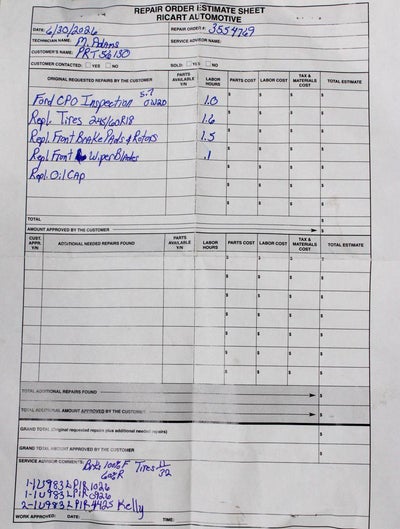 REPAIR ORDER ESTIMATE SHEET
RICART AUTOMOTIVE
DATE: 6/30/2026 REPAIR ORDER #: 3554769
TECHNICIAN NAME: M. Adams SERVICE ADVISOR NAME:
CUSTOMER'S NAME: PRT56130
CUSTOMER CONTACTED: YES NO SOLD: YES NO
ORIGINAL REQUESTED REPAIRS BY THE CUSTOMER PARTS AVAILABLE Y/N LABOR HOURS PARTS COST LABOR COST TAX & MATERIALS COST TOTAL ESTIMATE
Ford CPO Inspection 5.7 0W20 1.0 $ $ $ $
Repl. Tires 245/60R18 1.6 $ $ $ $
Repl. Front Brake Pads & Rotors 1.5 $ $ $ $
Repl Front Wiper Blades .1 $ $ $ $
Repl. Oil Cap $ $ $ $
$ $ $ $
TOTAL $
AMOUNT APPROVED BY THE CUSTOMER $
CUST. APPR. Y/N ADDITIONAL NEEDED REPAIRS FOUND PARTS AVAILABLE Y/N LABOR HOURS PARTS COST LABOR COST TAX & MATERIALS COST TOTAL ESTIMATE
$ $ $ $
$ $ $ $
$ $ $ $
$ $ $ $
$ $ $ $
$ $ $ $
$ $ $ $
TOTAL ADDITIONAL REPAIRS FOUND $
TOTAL ADDITIONAL AMOUNT APPROVED BY THE CUSTOMER $
GRAND TOTAL (Original requested repairs plus additional needed repairs) $
GRAND TOTAL AMOUNT APPROVED BY THE CUSTOMER $
SERVICE ADVISOR COMMENTS: Brks 100% F Tires 11/32
60% R
1-1U983LP1R 1026
1-1U983LP1R 0926
2-1U983LP1R 4425 Kelly
WORK APPROVED: DATE: TIME: